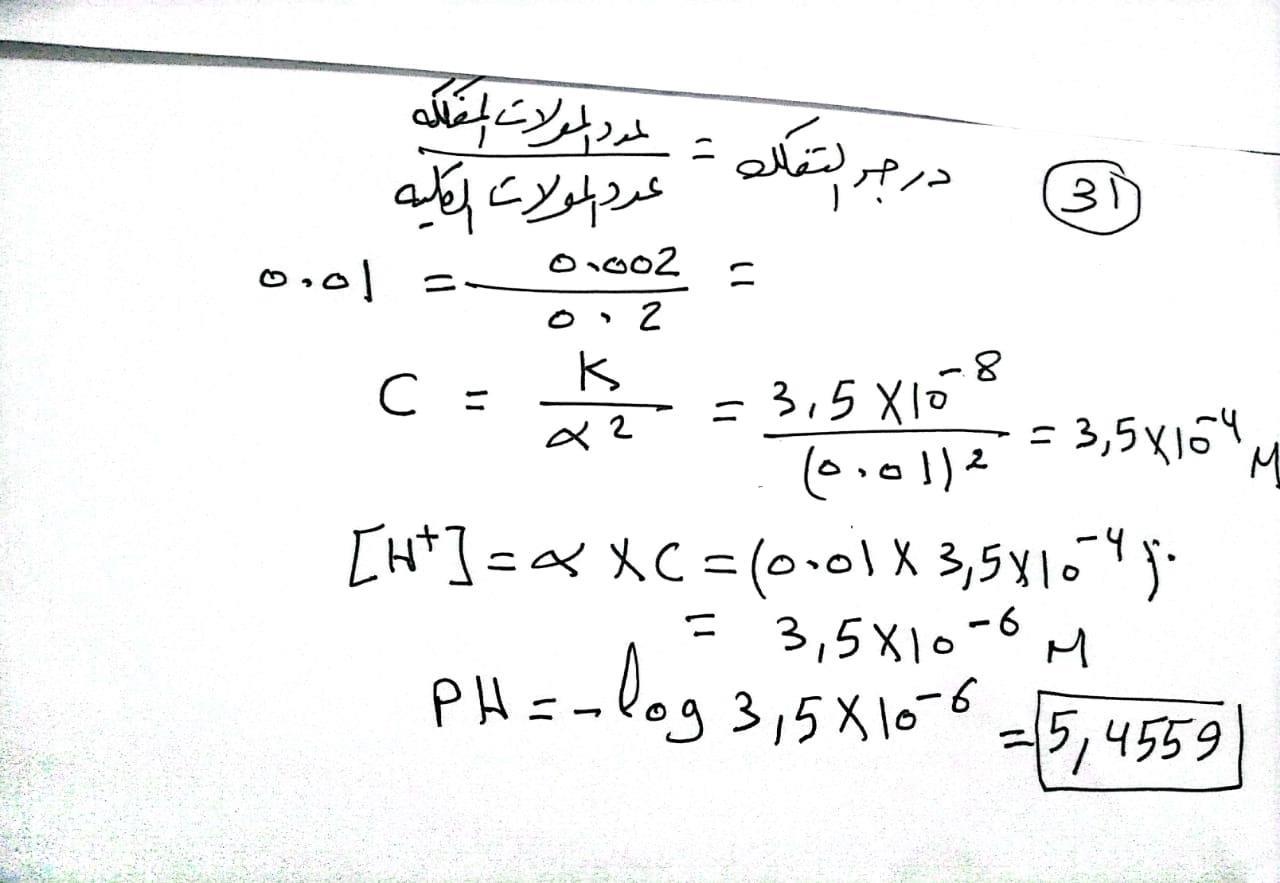 31 درجه التفكك = عدد المولات المفككه / عدد المولات الكليه
= 0.002 / 0.2 = 0.01
C = K / α2 = 3,5 X10-8 / (0.01)2 = 3,5X10-4 M
[H+] = α X C = (0.01 X 3,5X10-4).
= 3,5X10-6 M
PH = - log 3,5X10-6 = 5,4559